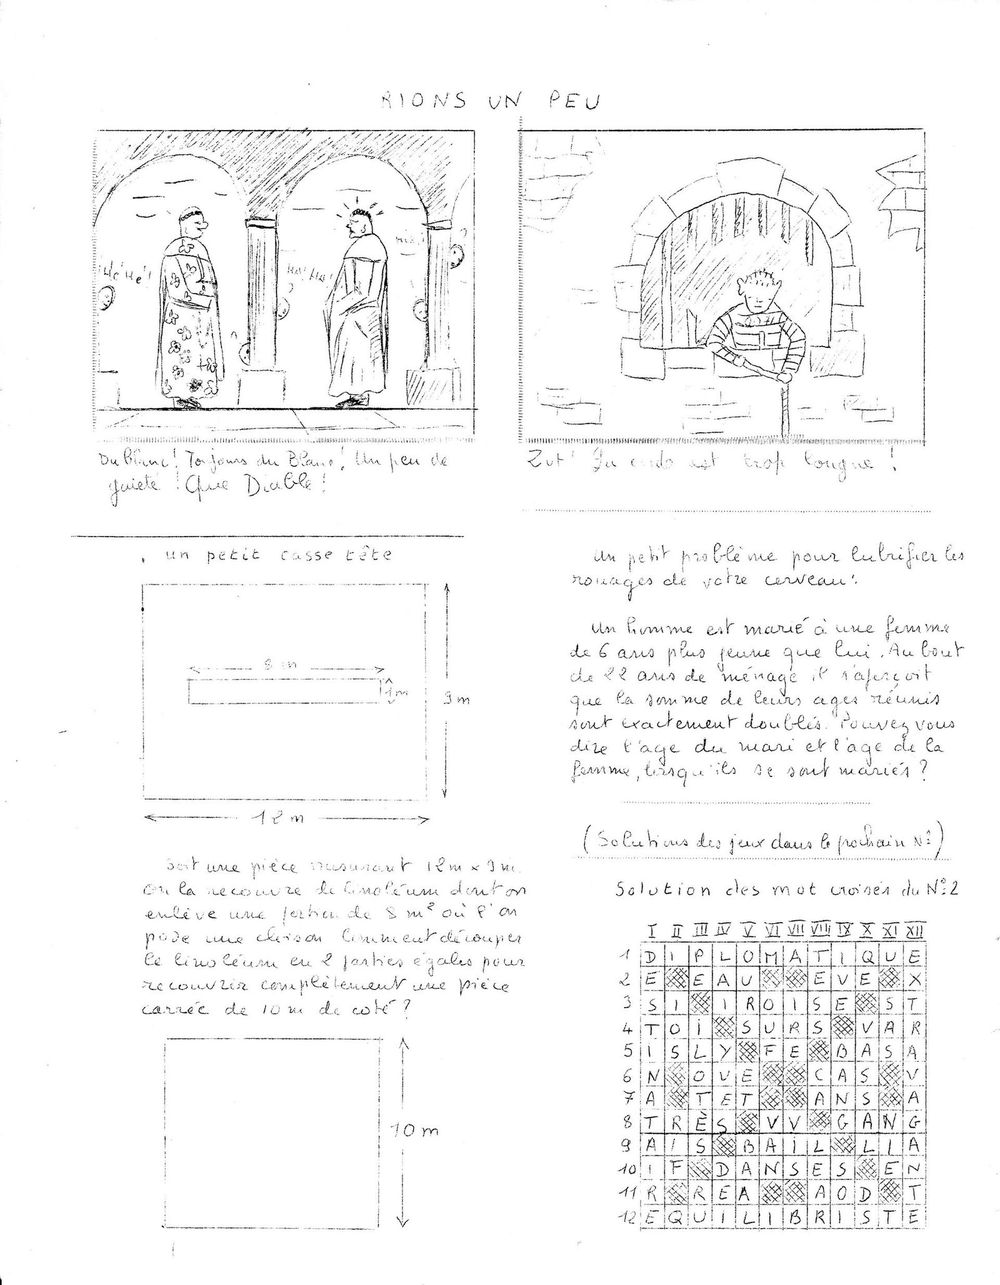 RIONS UN PEU
Hé! Hé!
Ha! Ha!
Du blanc! Toujours du Blanc! Un peu de
gaieté! Que Diable!
Zut! est trop longue!
un petit casse tête
8 m
1 m
9 m
12 m
Soit une pièce mesurant 12m x 9m.
On la recouvre de linoléum dont on
enlève une partie de 8 m² où l'on
pose une cloison comment découper
le linoléum en 2 parties égales pour
recouvrir complètement une pièce
carrée de 10 m de coté?
10 m
Un petit problème pour lubrifier les
rouages de votre cerveau.
Un homme est marié à une femme
de 6 ans plus jeune que lui. Au bout
de 22 ans de ménage il s'aperçoit
que la somme de leurs ages réunis
sont exactement doublés. Pouvez vous
dire l'age du mari et l'age de la
femme, lorsqu'ils se sont mariés?
(Solutions des jeux dans le prochain N°)
Solution des mot croisés du N°2
I II III IV V VI VII VIII IX X XI XII
1 D I P L O M A T I Q U E
2 E E A U E V E X
3 S I I R O I S E S T
4 T O I S U R S V A R
5 I S L Y F E B A S A
6 N O U E C A S V
7 A T E T A N S A
8 T R È S V V G A N G
9 A I S B A I L L I A
10 I F D A N S E S E N
11 R R E A A O D T
12 E Q U I L I B R I S T E